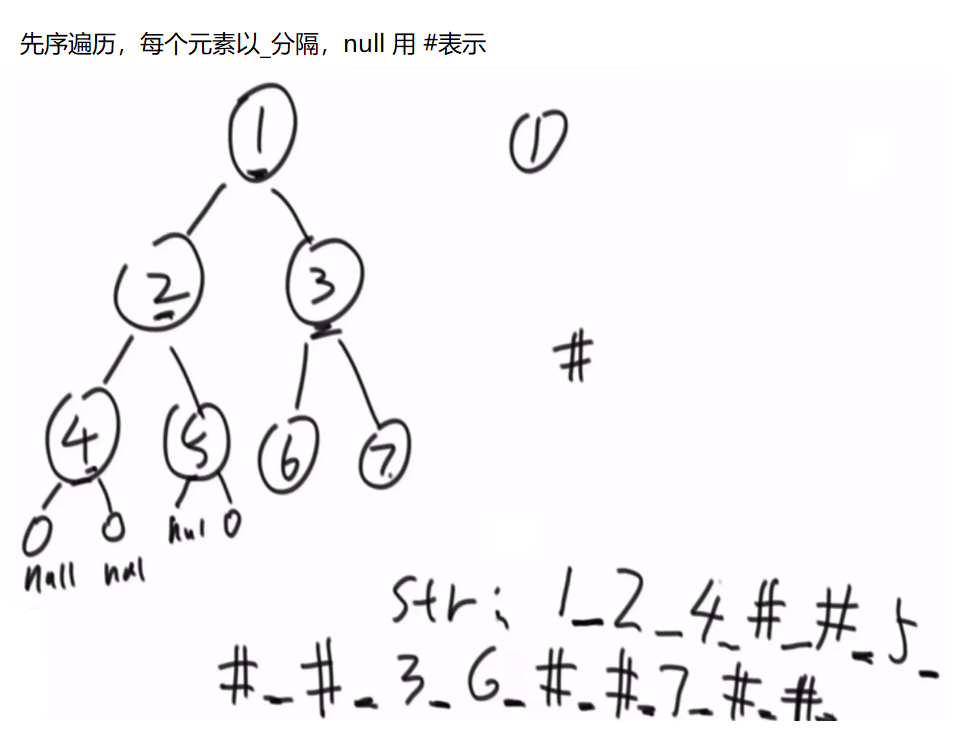 先序遍历，每个元素以_分隔，null 用 #表示
1
1
2
3
#
4
5
6
7
nul
null
nul
str: 1_2_4_#_#_5_
#_#_3_6_#_#_7_#_#_